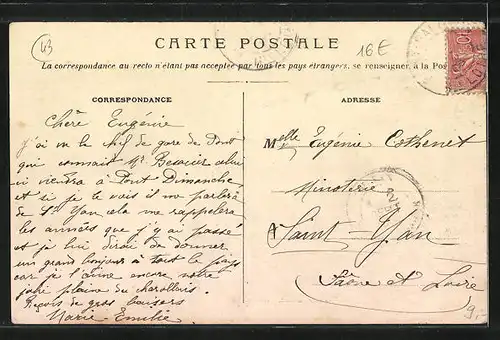 43
16E
CARTE POSTALE
La correspondance au recto n'étant pas acceptée par tous les pays étrangers, se renseigner à la Pos
CORRESPONDANCE
ADRESSE
Chère Eugénie
j'ai vu le chef de gare de Dont
qui connait Mr celui
ci viendra à Pont Dimanche,
et si je le vois il me parlera
de St Yan cela me rappelera
les années que j'y ai passé
et je lui dirai de donner
un grand bonjour à tout le pays
car je l'aime encore votre
jolie plaine du charollais.
Reçois de gros baisers
Marie Emilie
Melle Eugénie Cothenet
Minoterie
à Saint-Yan
Saône et Loire
9.-